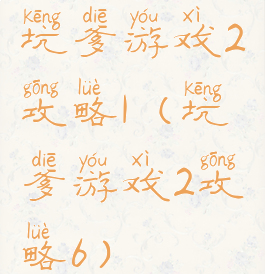 kēng diē yóu xì
坑爹游戏2
gōng lüè kēng
攻略1（坑
diē yóu xì gōng
爹游戏2攻
lüè
略6）